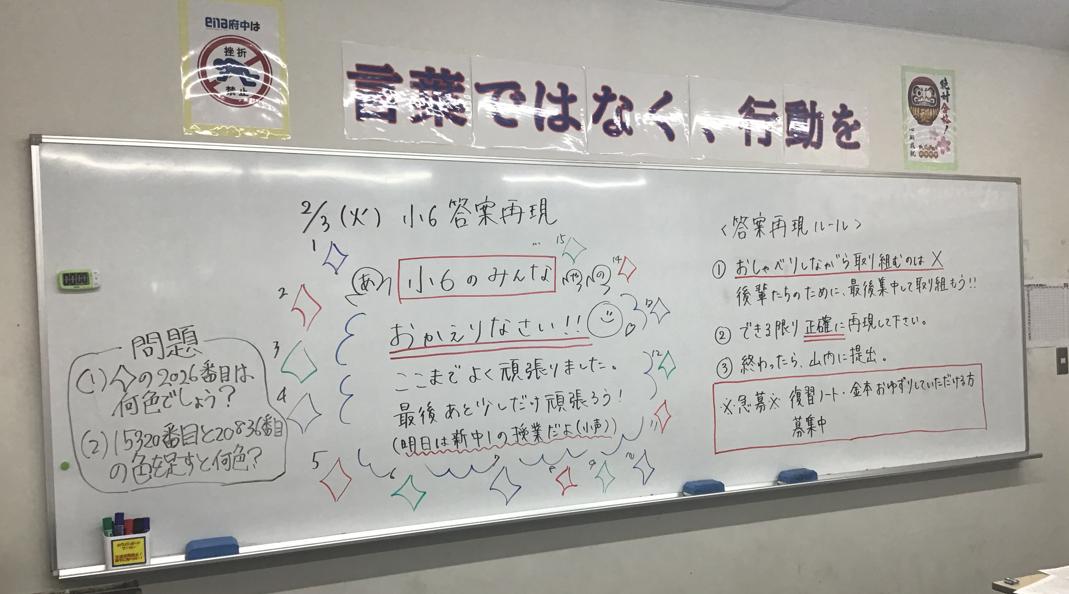 ena府中は
挫折
禁止
言葉ではなく、行動を
絶対合格！
2/3(火) 小6 答案再現
問題
(1) の2026番目は
何色でしょう？
(2) 15320番目と20836番目
の色を足すと何色？
1
2
3
4
5
6
7
8
9
10
11
12
13
14
15
小6のみんな
おかえりなさい!!
ここまでよく頑張りました。
最後あと少しだけ頑張ろう！
(明日は新中1の授業だよ(小声))
<答案再現ルール>
① おしゃべりしながら取り組むのは ×
後輩たちのために、最後集中して取り組もう!!
② できる限り正確に再現して下さい。
③ 終わったら、山内に提出。
※急募※ 復習ノート・金本おゆずりしていただける方
募集中